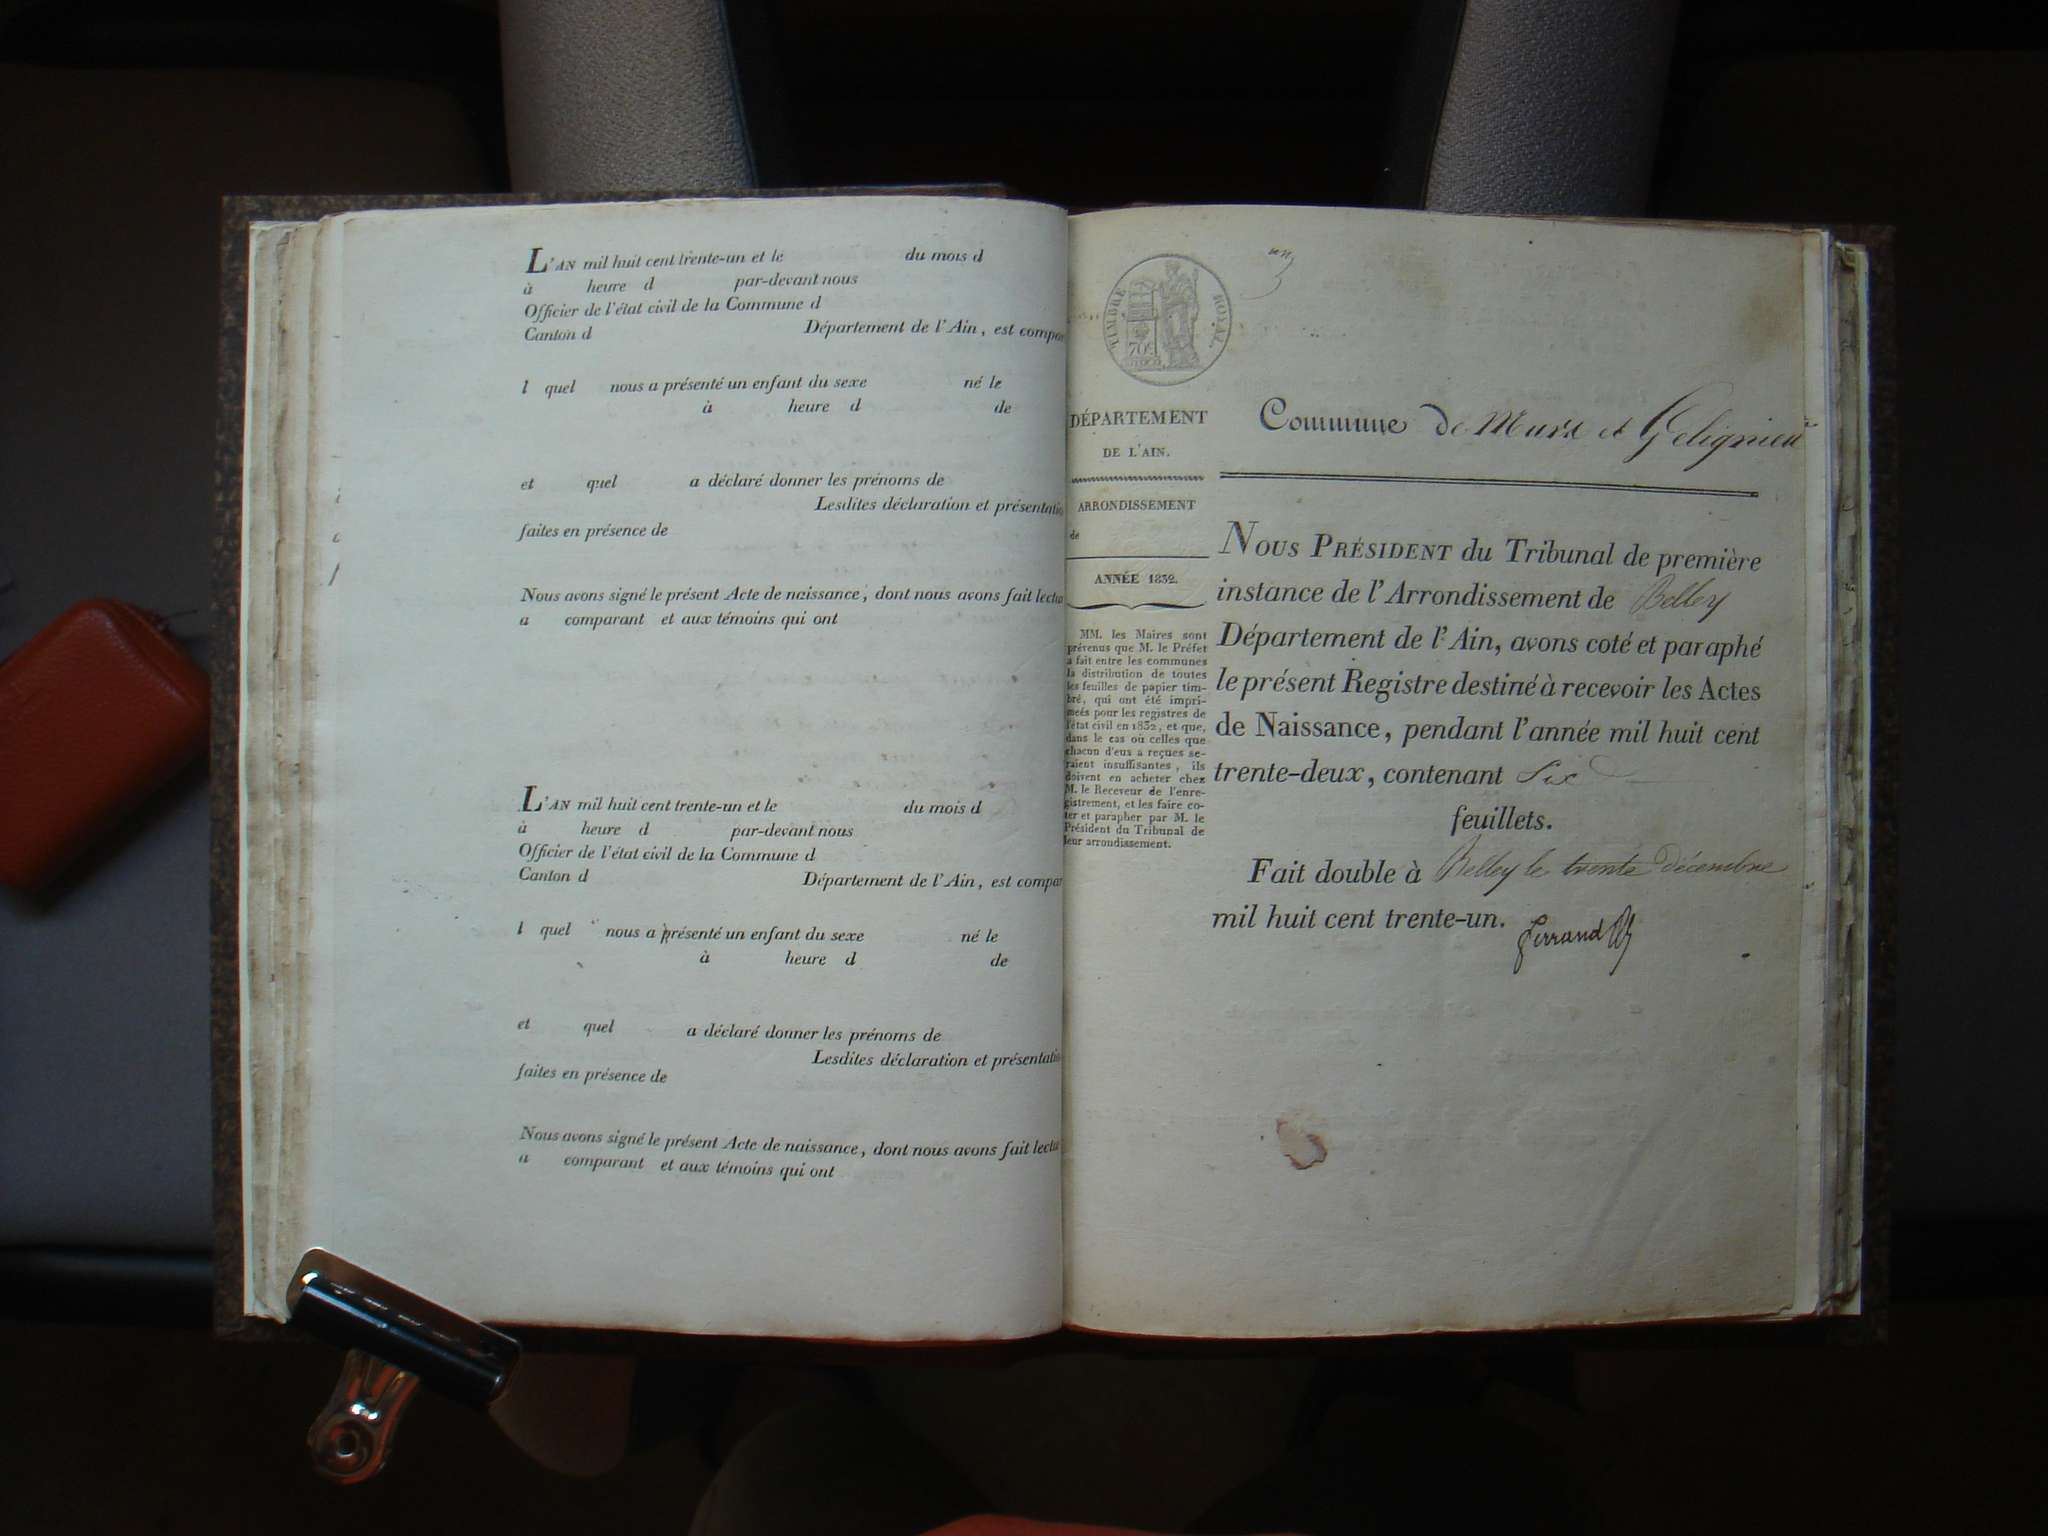 L'AN mil huit cent trente-un et le du mois d
à heure d par-devant nous
Officier de l'état civil de la Commune d
Canton d Département de l'Ain, est compar
l quel nous a présenté un enfant du sexe né le
à heure d de
et quel a déclaré donner les prénoms de
Lesdites déclaration et présentatio
faites en présence de
Nous avons signé le présent Acte de naissance, dont nous avons fait lectu
a comparant et aux témoins qui ont
L'AN mil huit cent trente-un et le du mois d
à heure d par-devant nous
Officier de l'état civil de la Commune d
Canton d Département de l'Ain, est compar
l quel nous a présenté un enfant du sexe né le
à heure d de
et quel a déclaré donner les prénoms de
Lesdites déclaration et présentatio
faites en présence de
Nous avons signé le présent Acte de naissance, dont nous avons fait lectu
a comparant et aux témoins qui ont
un
TIMBRE ROYAL.
70c
DÉPARTEMENT
DE L'AIN.
ARRONDISSEMENT
de
ANNÉE 1832.
MM. les Maires sont
prévenus que M. le Préfet
a fait entre les communes
la distribution de toutes
les feuilles de papier tim-
bré, qui ont été impri-
meés pour les registres de
l'état civil en 1832, et que,
dans le cas où celles que
chacun d'eux a reçues se-
raient insuffisantes, ils
doivent en acheter chez
M. le Receveur de l'enre-
gistrement, et les faire co-
ter et parapher par M. le
Président du Tribunal de
leur arrondissement.
Commune de Murs et Gelignieu
NOUS PRÉSIDENT du Tribunal de première
instance de l'Arrondissement de Belley
Département de l'Ain, avons coté et paraphé
le présent Registre destiné à recevoir les Actes
de Naissance, pendant l'année mil huit cent
trente-deux, contenant Six
feuillets.
Fait double à Belley le trente Décembre
mil huit cent trente-un. Ferrand